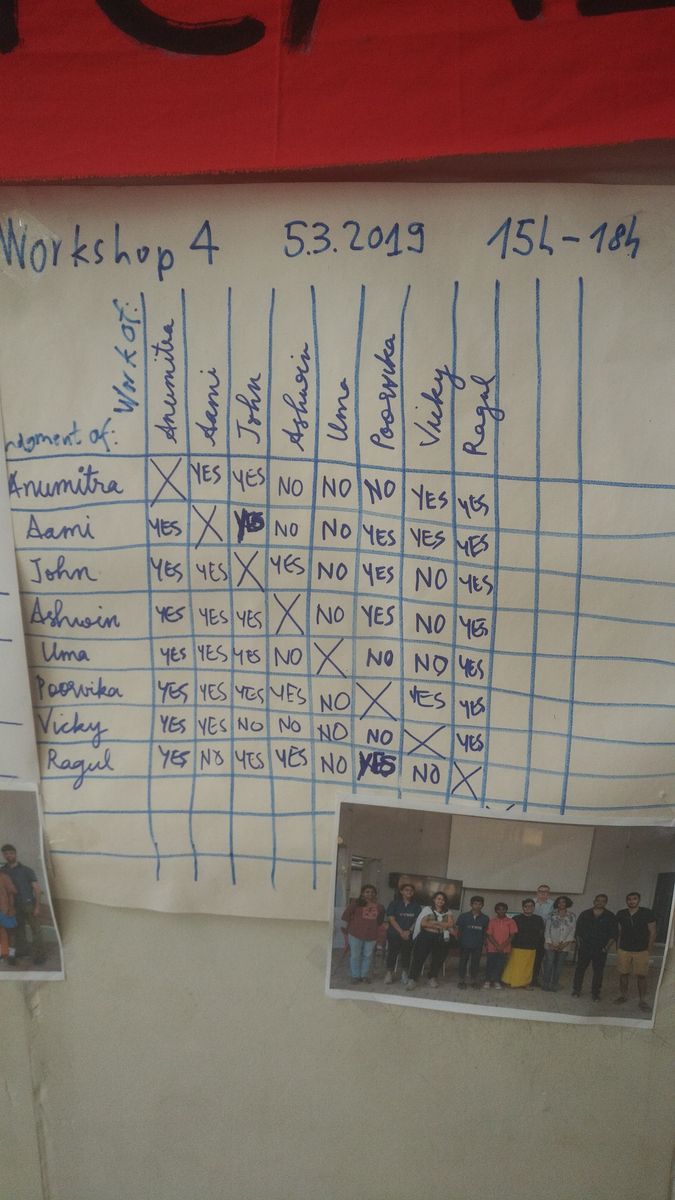 Workshop 4 5.3.2019 15h-18h
Work of: Anumitra Aami John Ashwin Uma Poorvika Vicky Ragul
of:
Anumitra X YES YES NO NO NO YES YES
Aami YES X YES NO NO YES YES YES
John YES YES X YES NO YES NO YES
Ashwin YES YES YES X NO YES NO YES
Uma YES YES YES NO X NO NO YES
Poorvika YES YES YES YES NO X YES YES
Vicky YES YES NO NO NO NO X YES
Ragul YES NO YES YES NO YES NO X